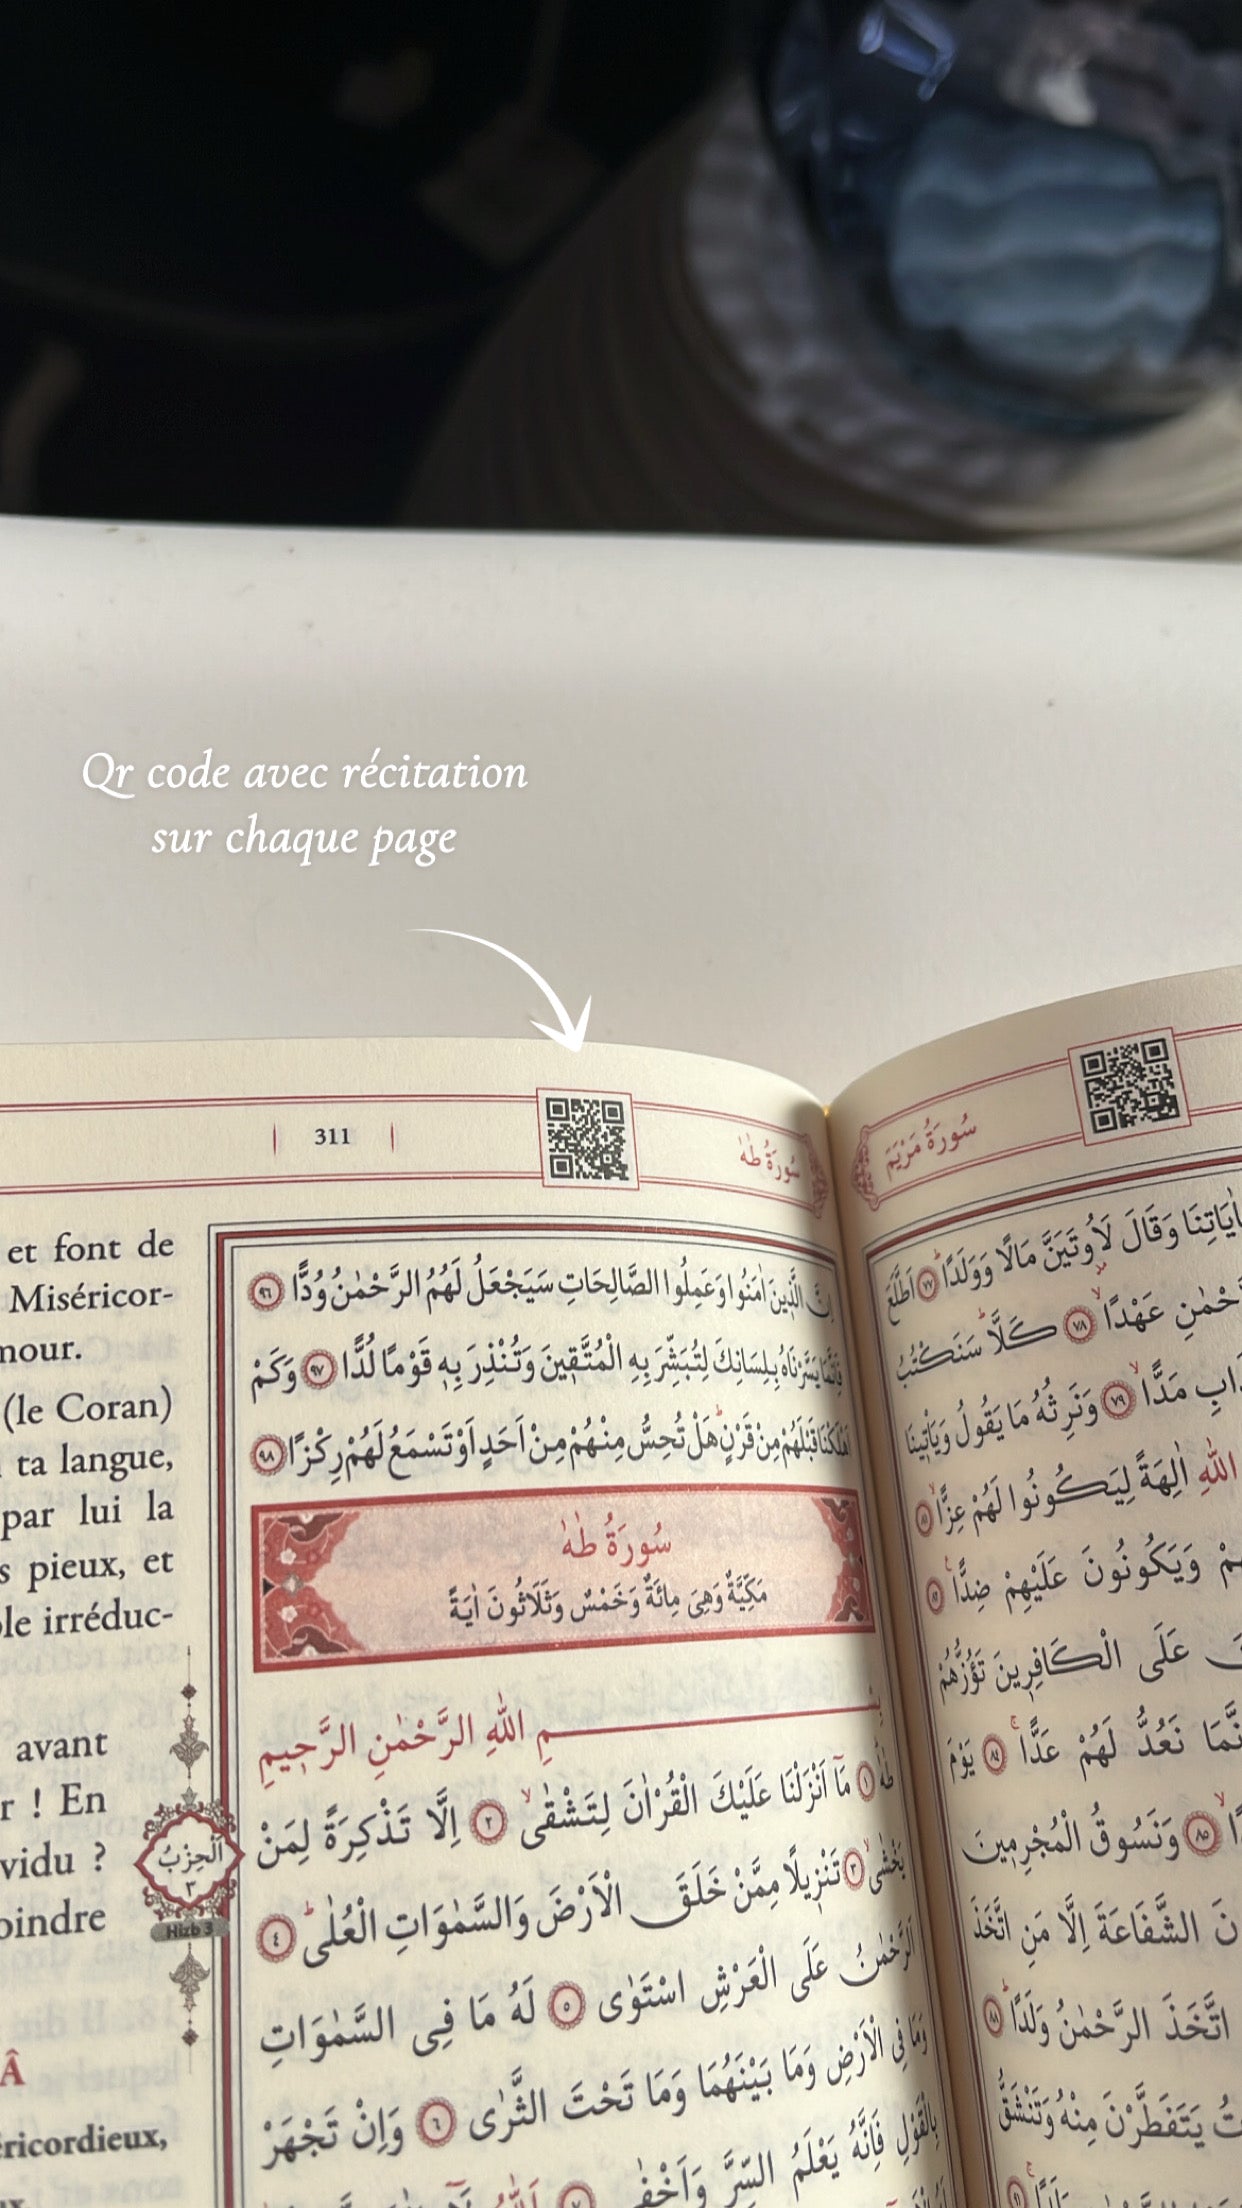 Qr code avec récitation
sur chaque page
311
سُورَةُ طٰهٰ
سُورَةُ مَرْيَمَ
et font de
Miséricor-
mour.
(le Coran)
ta langue,
par lui la
s pieux, et
le irréduc-
avant
r ! En
vidu ?
oindre
Â
éricordieux,
اَلْحِزْبُ
٣
Hizb 3
اِنَّ الَّذ۪ينَ اٰمَنُوا وَعَمِلُوا الصَّالِحَاتِ سَيَجْعَلُ لَهُمُ الرَّحْمٰنُ وُدًّا ٩٦
فَاِنَّمَا يَسَّرْنَاهُ بِلِسَانِكَ لِتُبَشِّرَ بِهِ الْمُتَّق۪ينَ وَتُنْذِرَ بِه۪ قَوْمًا لُدًّا ٩٧ وَكَمْ
اَهْلَكْنَا قَبْلَهُمْ مِنْ قَرْنٍۜ هَلْ تُحِسُّ مِنْهُمْ مِنْ اَحَدٍ اَوْ تَسْمَعُ لَهُمْ رِكْزًا ٩٨
سُورَةُ طٰهٰ
مَكِّيَّةٌ وَهِيَ مِائَةٌ وَخَمْسٌ وَثَلَاثُونَ اٰيَةً
بِسْمِ اللّٰهِ الرَّحْمٰنِ الرَّح۪يمِ
طٰهٰ ١ مَٓا اَنْزَلْنَا عَلَيْكَ الْقُرْاٰنَ لِتَشْقٰىۙ ٢ اِلَّا تَذْكِرَةً لِمَنْ
يَخْشٰىۙ ٣ تَنْز۪يلًا مِمَّنْ خَلَقَ الْاَرْضَ وَالسَّمٰوَاتِ الْعُلٰىۜ ٤
اَلرَّحْمٰنُ عَلَى الْعَرْشِ اسْتَوٰى ٥ لَهُ مَا فِي السَّمٰوَاتِ
وَمَا فِي الْاَرْضِ وَمَا بَيْنَهُمَا وَمَا تَحْتَ الثَّرٰى ٦ وَاِنْ تَجْهَرْ
بِالْقَوْلِ فَاِنَّهُ يَعْلَمُ السِّرَّ وَاَخْفٰى ٧ اَللّٰهُ
اٰيَاتِنَا وَقَالَ لَاُو۫تَيَنَّ مَالًا وَوَلَدًاۜ ٧٧ اَطَّلَعَ
الرَّحْمٰنِ عَهْدًاۙ ٧٨ كَلَّاۜ سَنَكْتُبُ
مَدًّاۙ ٧٩ وَنَرِثُهُ مَا يَقُولُ وَيَأْت۪ينَا
اللّٰهِ اٰلِهَةً لِيَكُونُوا لَهُمْ عِزًّاۙ ٨١
وَيَكُونُونَ عَلَيْهِمْ ضِدًّا۟ ٨٢
عَلَى الْكَافِر۪ينَ تَؤُزُّهُمْ
نَعُدُّ لَهُمْ عَدًّاۚ ٨٤ يَوْمَ
٨٥ وَنَسُوقُ الْمُجْرِم۪ينَ
الشَّفَاعَةَ اِلَّا مَنِ اتَّخَذَ
اتَّخَذَ الرَّحْمٰنُ وَلَدًاۜ ٨٨
يَتَفَطَّرْنَ مِنْهُ وَتَنْشَقُّ